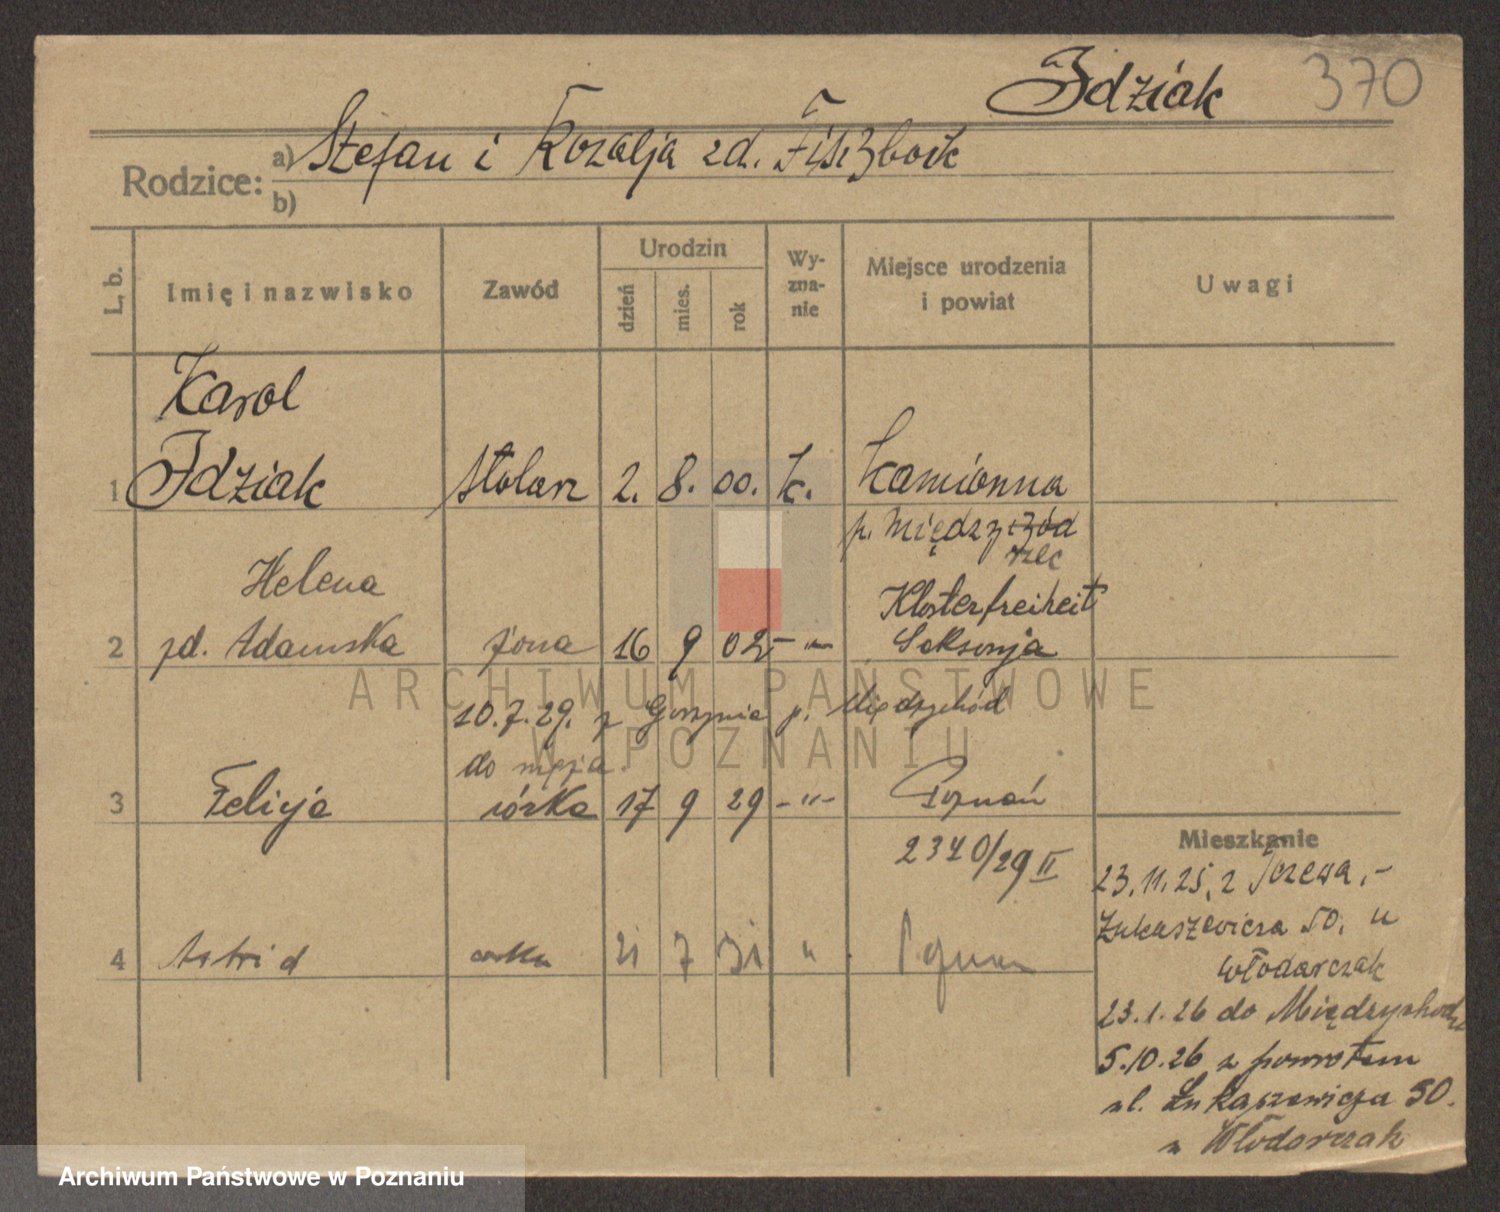 Idziak 370
Rodzice: a) Stefan i Rozalja zd. Fiszbock
b)
L. b. Imię i nazwisko Zawód Urodzin dzień mies. rok Wy-zna-nie Miejsce urodzenia i powiat Uwagi
Karol
1 Idziak stolarz 2. 8. 00. k. Kamionna
p. Międzyrzec
Helena Klosterfreiheit
2 zd. Adamska żona 16 9 02 -"- Saksonja
10.7.29. z Gorzynia p. Międzychód
do męża.
3 Felicja córka 17 9 29 -"- Poznań
2340/29 II
4 Astrid córka 21 7 31 " Poznań
Mieszkanie
23.11.25, z Tczewa,-
Łukaszewicza 50, u
Włodarczak
23.1.26 do Międzychodu
5.10.26 z powrotem
ul. Łukaszewicza 50.
u Włodarczak
ARCHIWUM PAŃSTWOWE
W POZNANIU
Archiwum Państwowe w Poznaniu